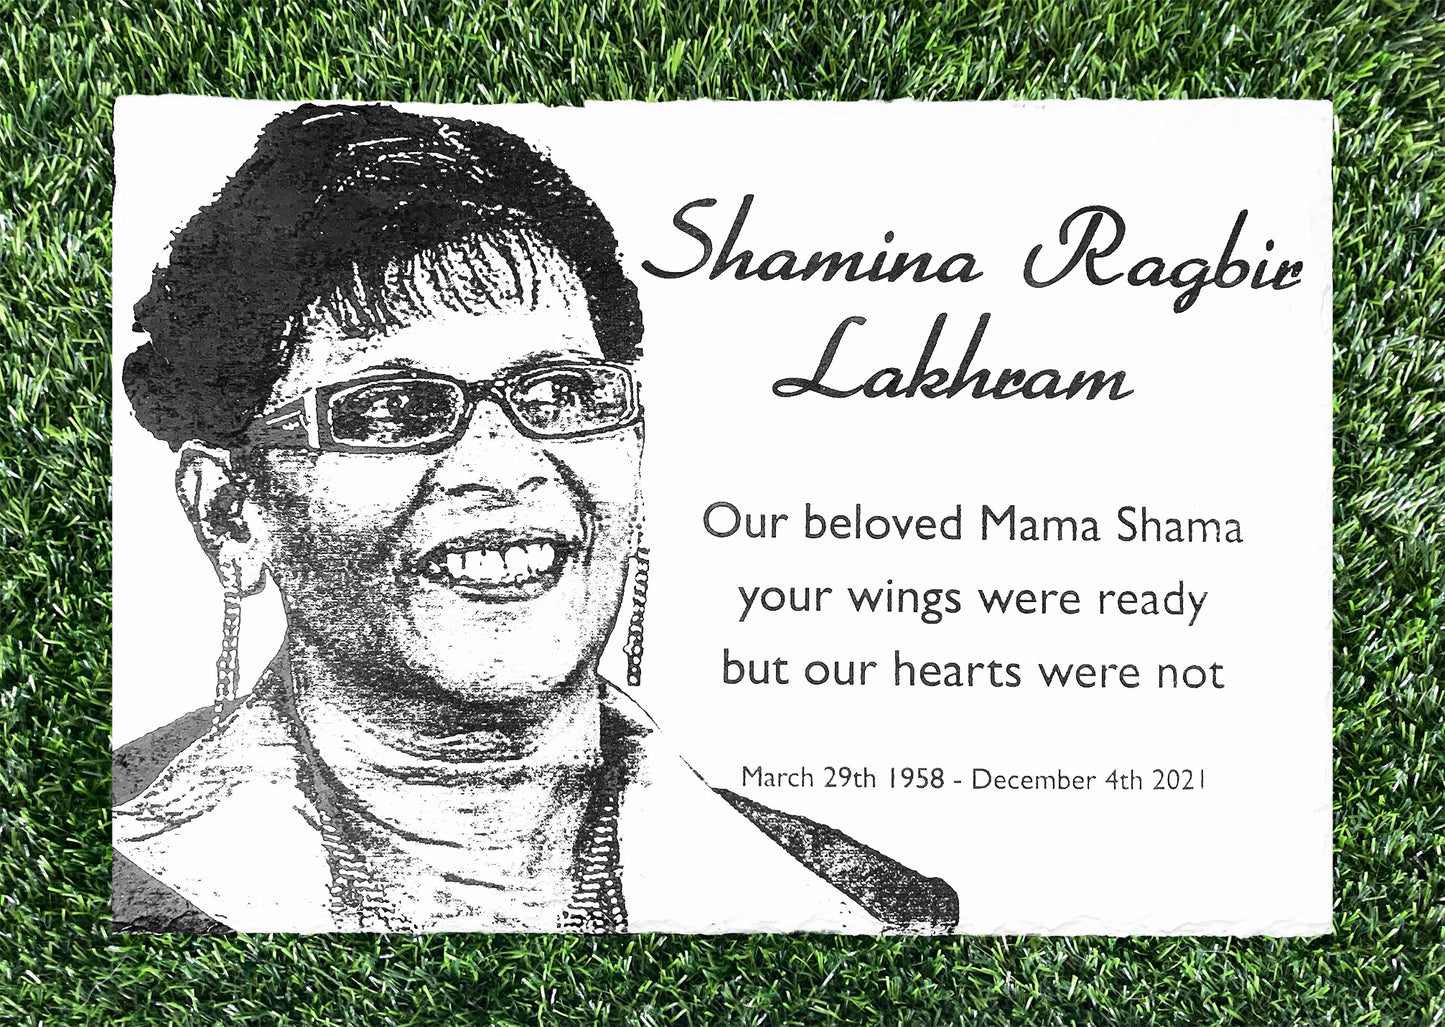 Shamina Ragbir
Lakhram
Our beloved Mama Shama
your wings were ready
but our hearts were not
March 29th 1958 - December 4th 2021